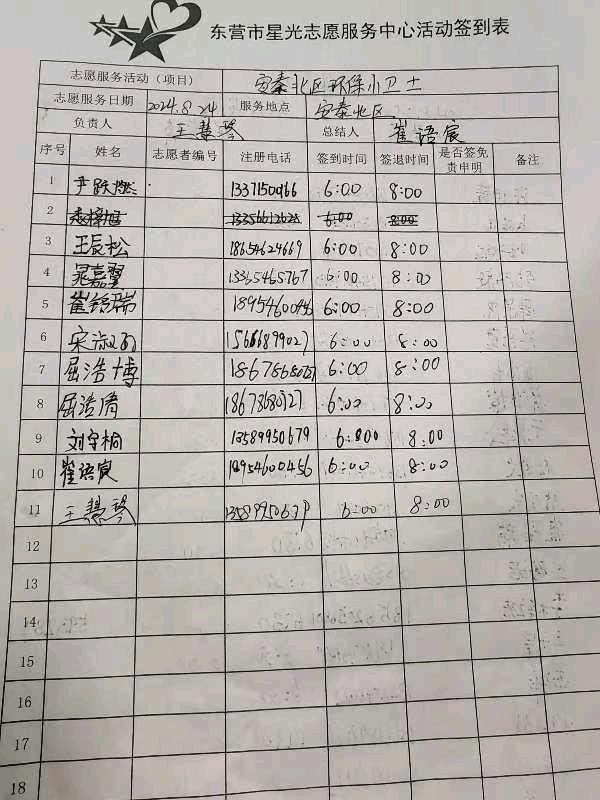 东营市星光志愿服务中心活动签到表
志愿服务活动（项目） 安泰北区环保小卫士
志愿服务日期 2024.8.24 服务地点 安泰北区
负责人 王慧琴 总结人 崔语宸
序号 姓名 志愿者编号 注册电话 签到时间 签退时间 是否签免责申明 备注
1 尹跃燃 6:00 8:00
2 6:00 8:00
3 王辰松 18654624669 6:00 8:00
4 晁嘉翼 13365465767 6:00 8:00
5 崔铭瑞 18954600456 6:00 8:00
6 宋淑 15668699027 6:00 8:00
7 屈浩博 6:00 8:00
8 屈浩倩 18678680727 6:00 8:00
9 刘宇桐 13589950679 6:00 8:00
10 崔语宸 18954600456 6:00 8:00
11 王慧琴 6:00 8:00
12
13
14
15
16
17
18